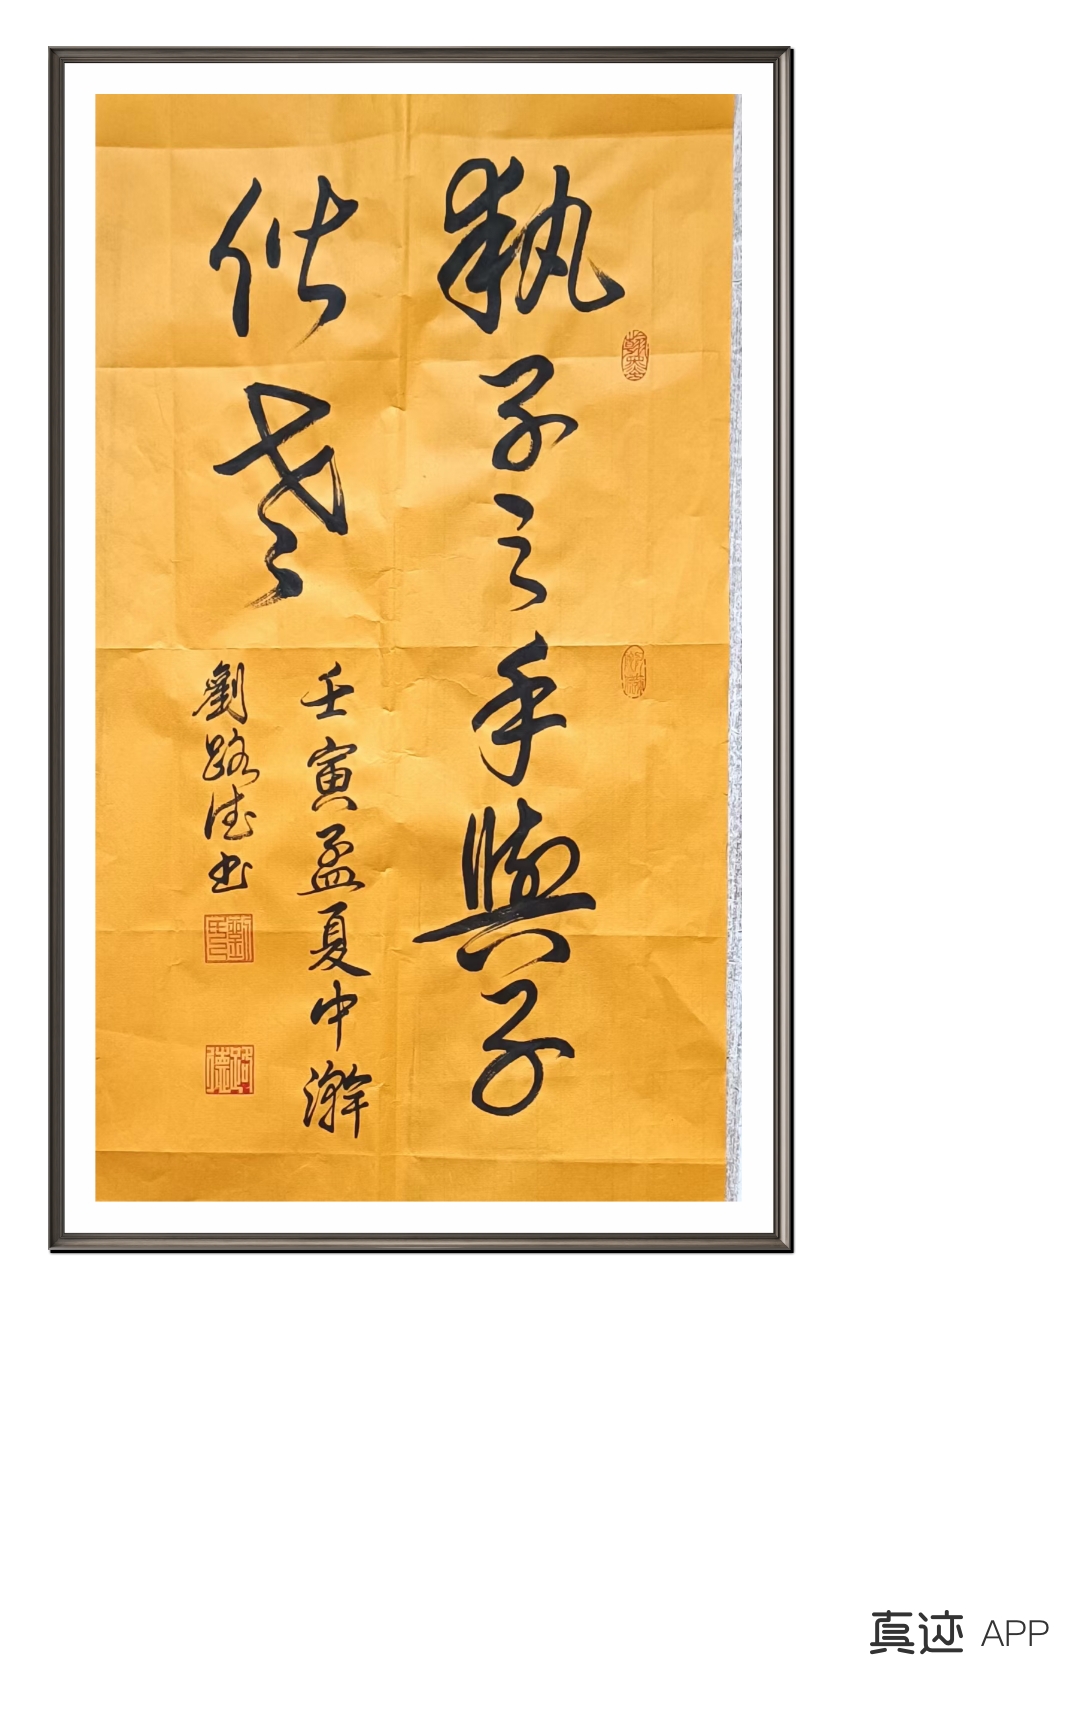 執子之手與子
偕老
壬寅孟夏中澣
劉路德書
路德
真迹 APP